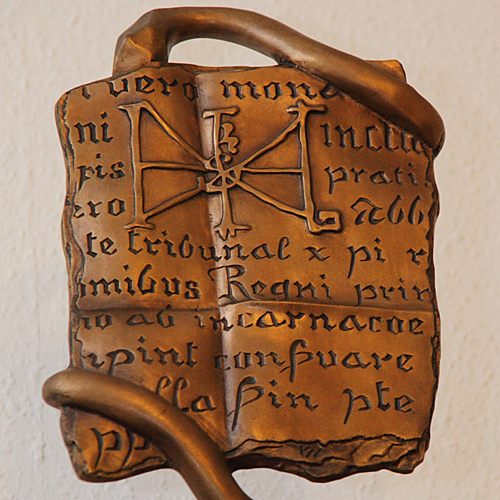 vero mone
ni inclu
pis prati
ero Abb
te tribunal x pi r
omibus Regni prin
io ab incarnacoe
npint conßuare
lla ßin pte
pp